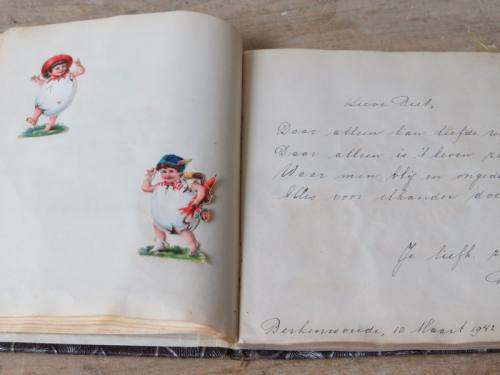 Lieve Riet,
Daar alleen kan liefde w
Daar alleen is 't leven z
Waar men blij en onged
Alles voor elkander do
Je liefh. z
Berkenwoude, 10 Maart 1942